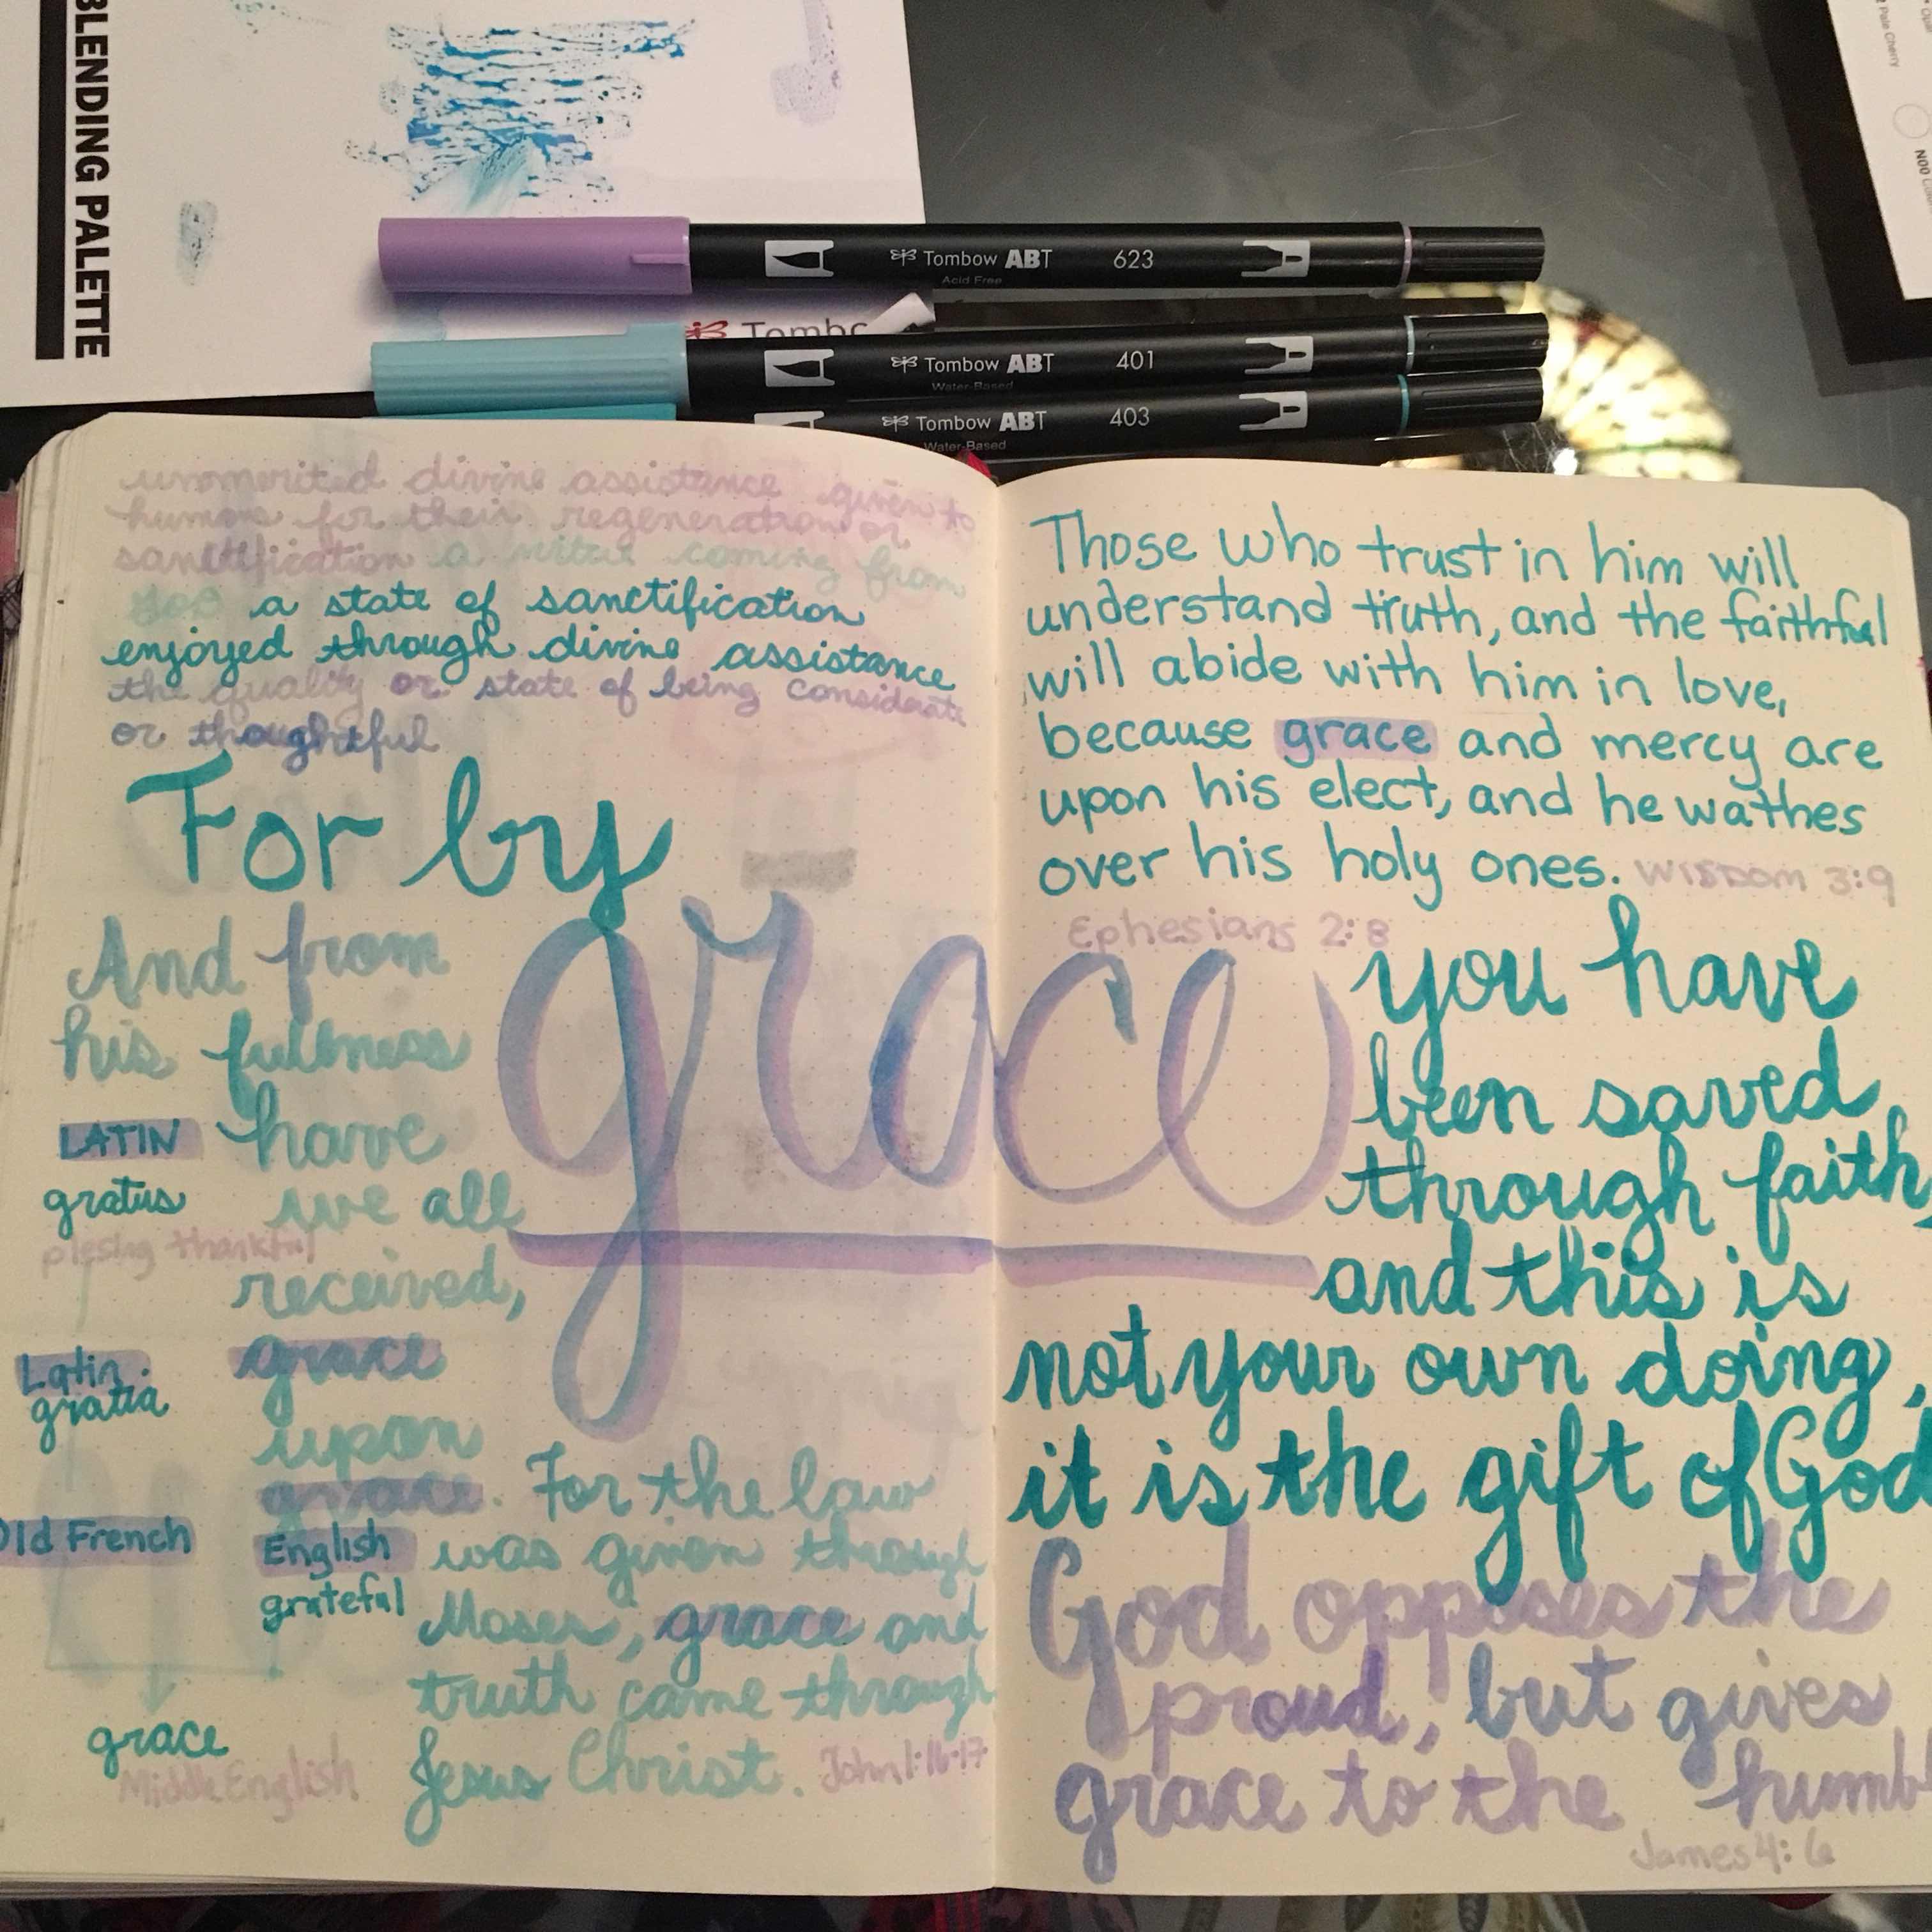 BLENDING PALETTE
Pale Cherry
N00
Tombow ABT 623
Acid Free
Tombow ABT 401
Water-Based
Tombow ABT 403
Water-Based
unmerited divine assistance given to
humans for their regeneration or
sanctification a virtue coming from
God a state of sanctification
enjoyed through divine assistance
the quality or state of being considerate
or thoughtful
For by
grace
And from
his fullness
have
we all
received,
grace
upon
grace. For the law
was given through
Moses, grace and
truth came through
Jesus Christ. John 1:16-17
LATIN
gratus
plesing thankful
Latin
gratia
Old French
English
grateful
grace
Middle English
Those who trust in him will
understand truth, and the faithful
will abide with him in love,
because grace and mercy are
upon his elect, and he wathes
over his holy ones. WISDOM 3:9
Ephesians 2:8
you have
been saved
through faith,
and this is
not your own doing,
it is the gift of God
God opposes the
proud, but gives
grace to the humbl
James 4:6